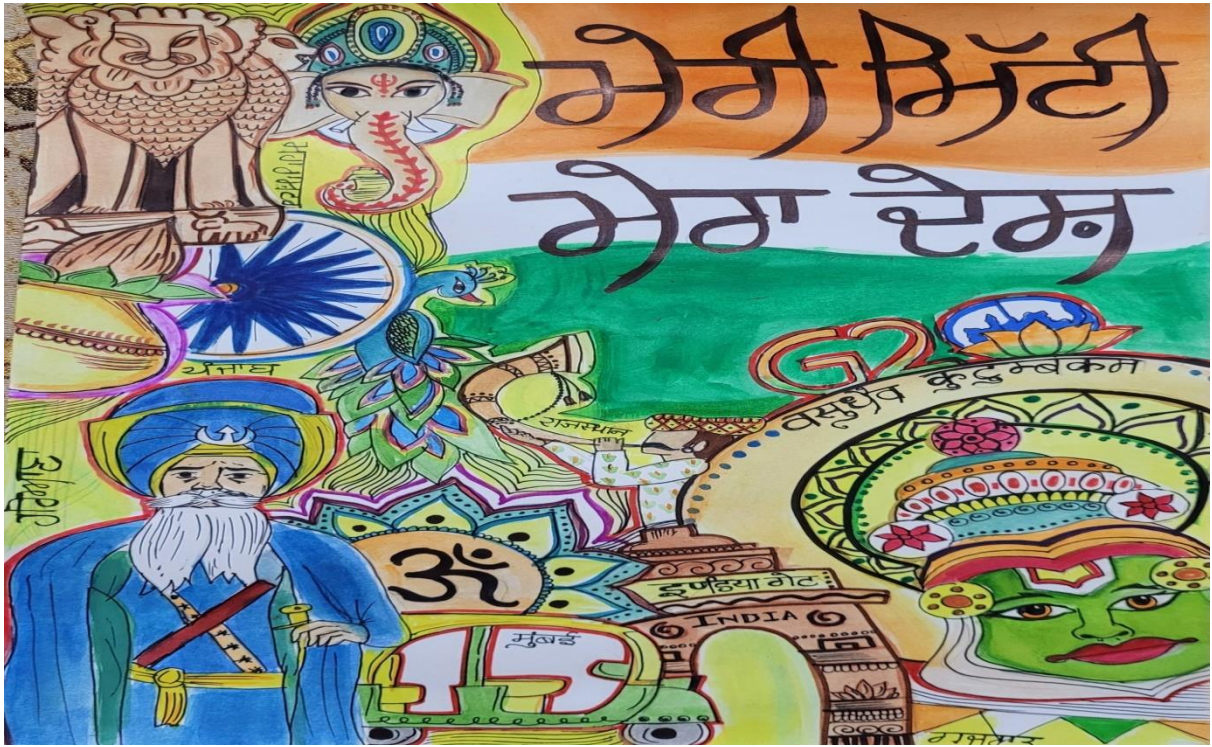 ਮੇਰੀ ਮਿੱਟੀ
ਮੇਰਾ ਦੇਸ਼
G20
वसुधैव कुटुम्बकम
ਪੰਜਾਬ
राजस्थान
ॐ
इण्डिया गेट
INDIA
मुंबई